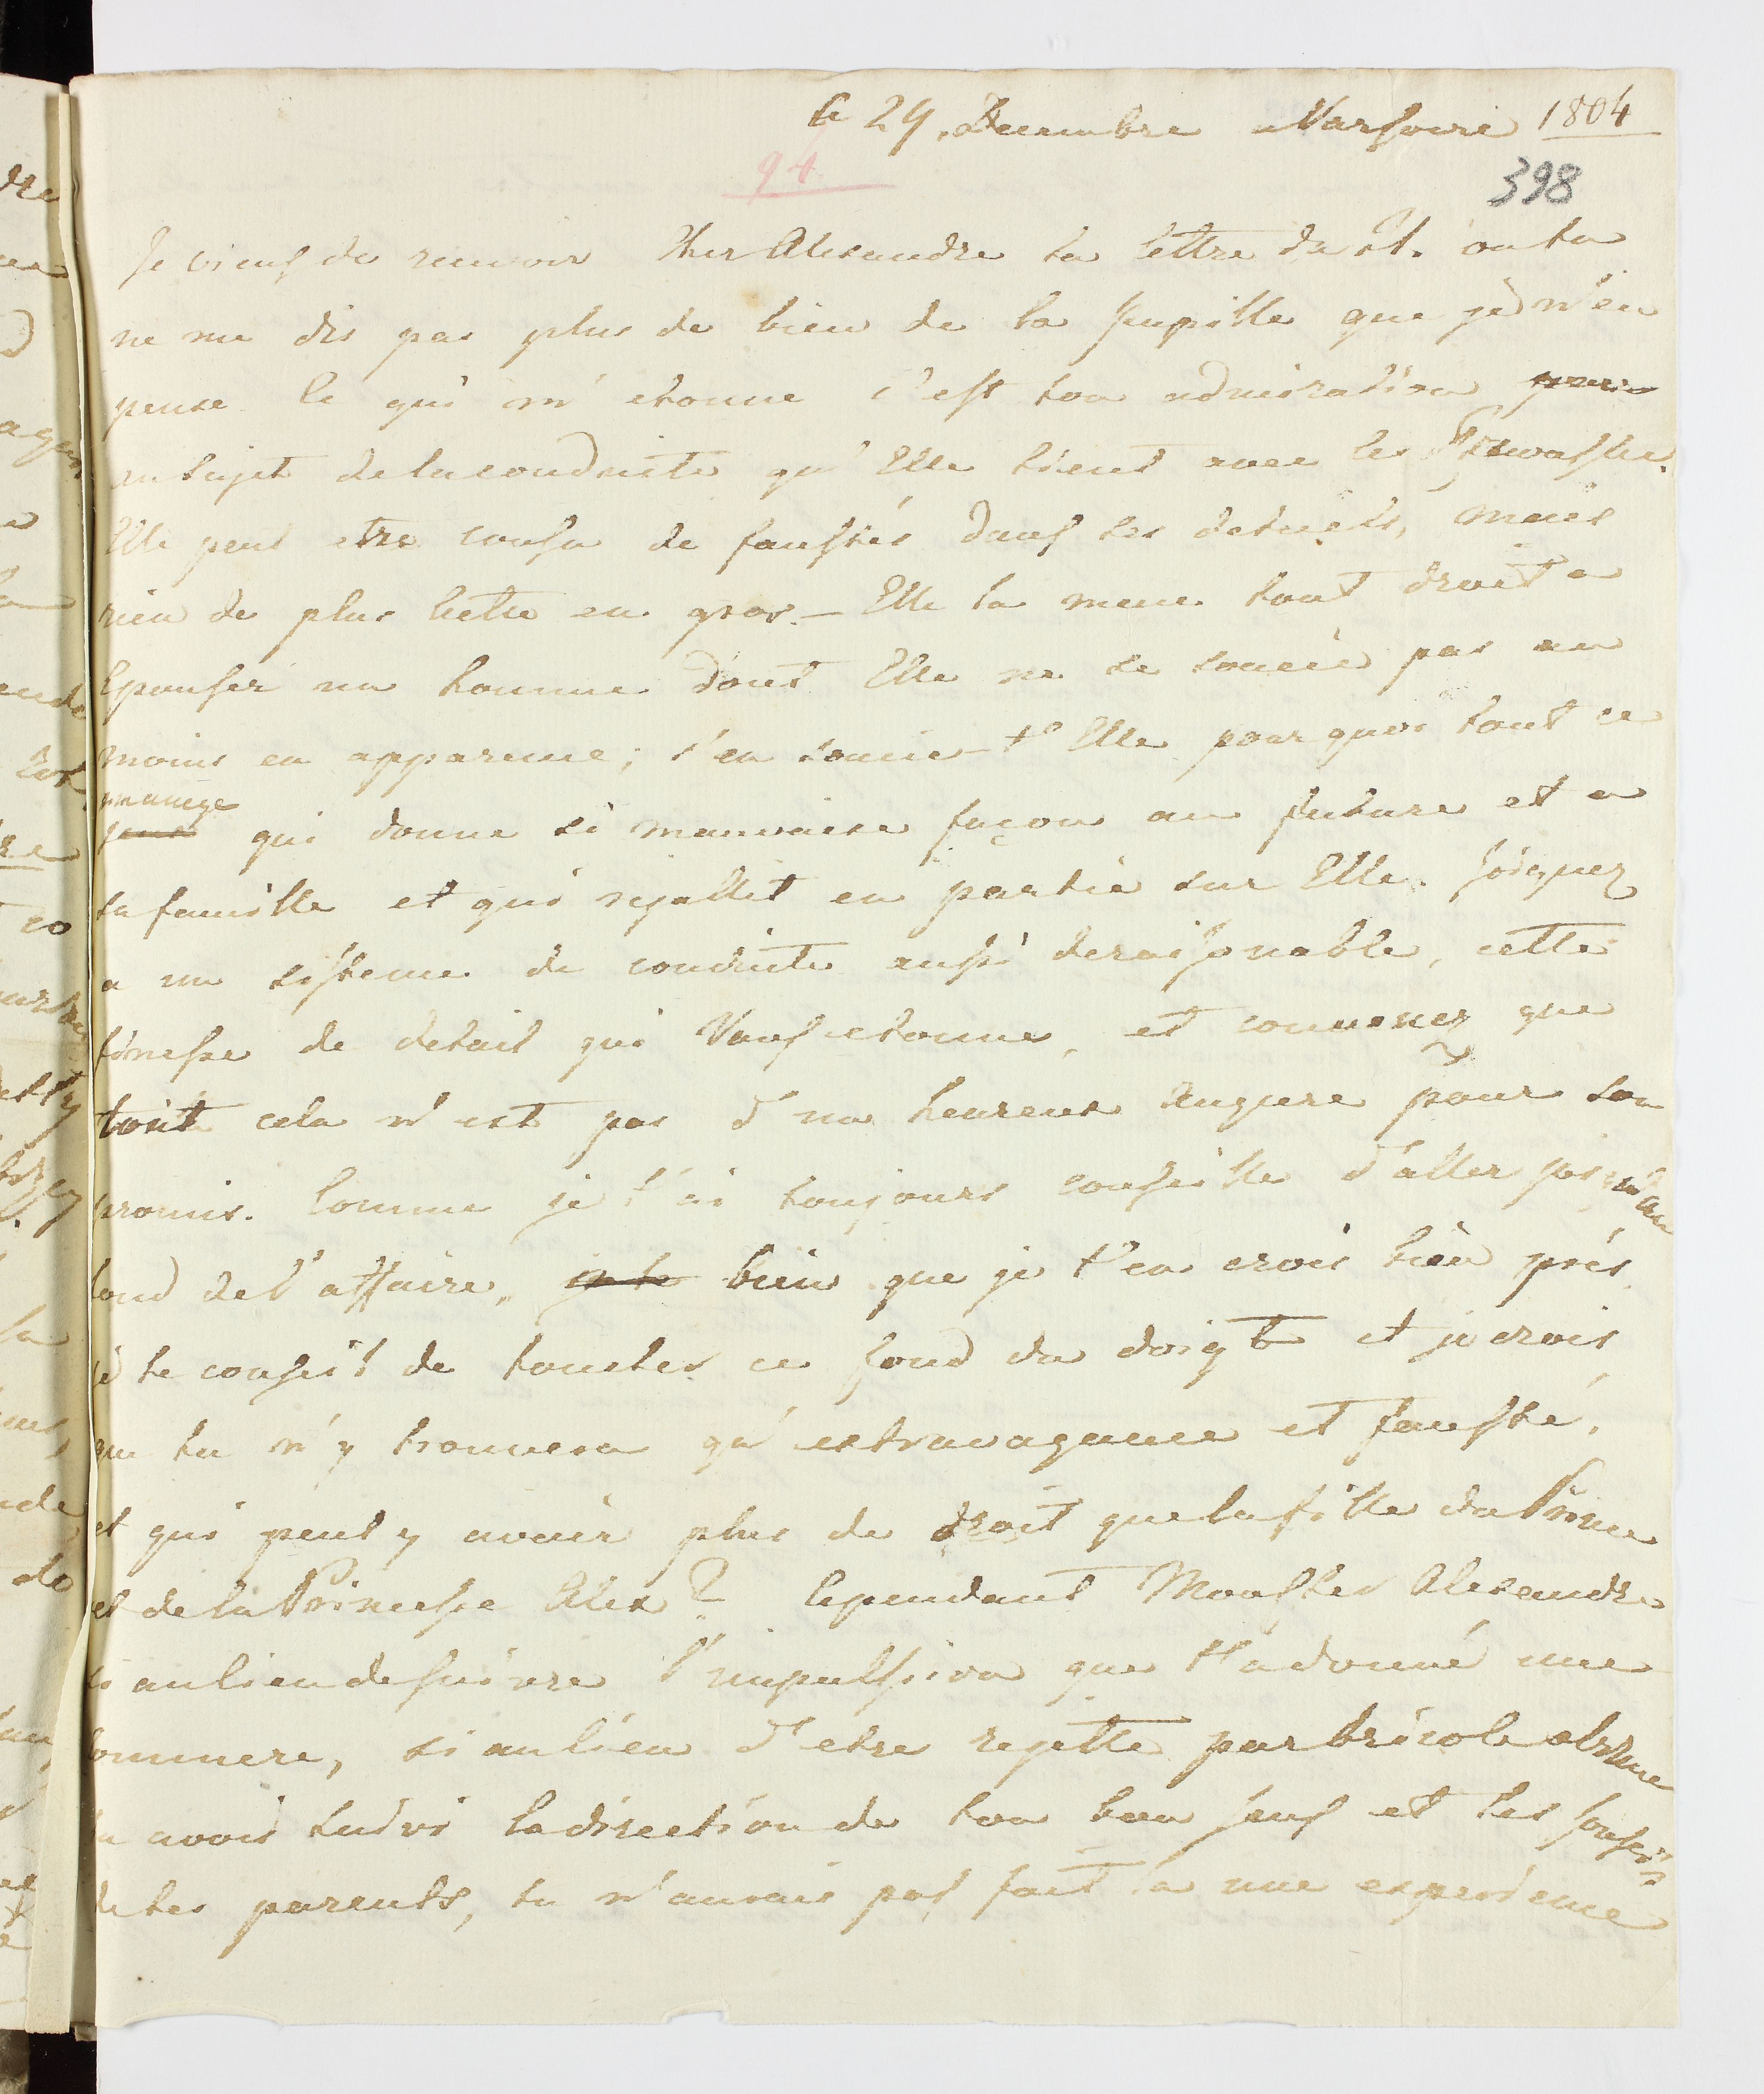 le 29. Decembre a Varsovie 1804
94
398
Je viens de recevoir Cher Alexandre ta lettre du 21. ou tu
ne me dis pas plus de bien de la pupille que je n'en
pense. Ce qui m'etonne c'est ton admiration
au sujet de la conduite qu'Elle tient avec les
Elle peut etre cousu de faussés dans les details, mais
rien de plus bette en gros. – Elle la mene tout droit a
Epouser un homme dont Elle ne se soucie pas au
moins en apparence; s'en soucie-t'Elle pourquoi tout ce
manege
jeux qui donne si mauvaise façon au future et a
sa famille et qui rejallit en partie sur Elle. Joignez
a un sisteme de conduite aussi deraisonable, cette
finesse de detail qui Vous etonne, et convenez que
tout cela n'est pas d'un heureux augure pour son
promis. Comme je t'ai toujours conseille d'aller jusqu'au
fond de l'affaire, je te bien que je t'en crois bien près
je te conseil de toucher ce fond du doigt et je crois
que tu n'y trouvera qu'extravagance et fausseté,
et qui peut y avoir plus de droit que la fille du Prince
et de la Princesse Alex? Cependant Monster Alexandre
si au lieu de suivre l'impulsion que t'a donné une
commere, si au lieu d'etre rejette par bricole
tu avois suivi la direction de ton bon sens et les conseils
de tes parents, tu n'aurais pas fait la une experience